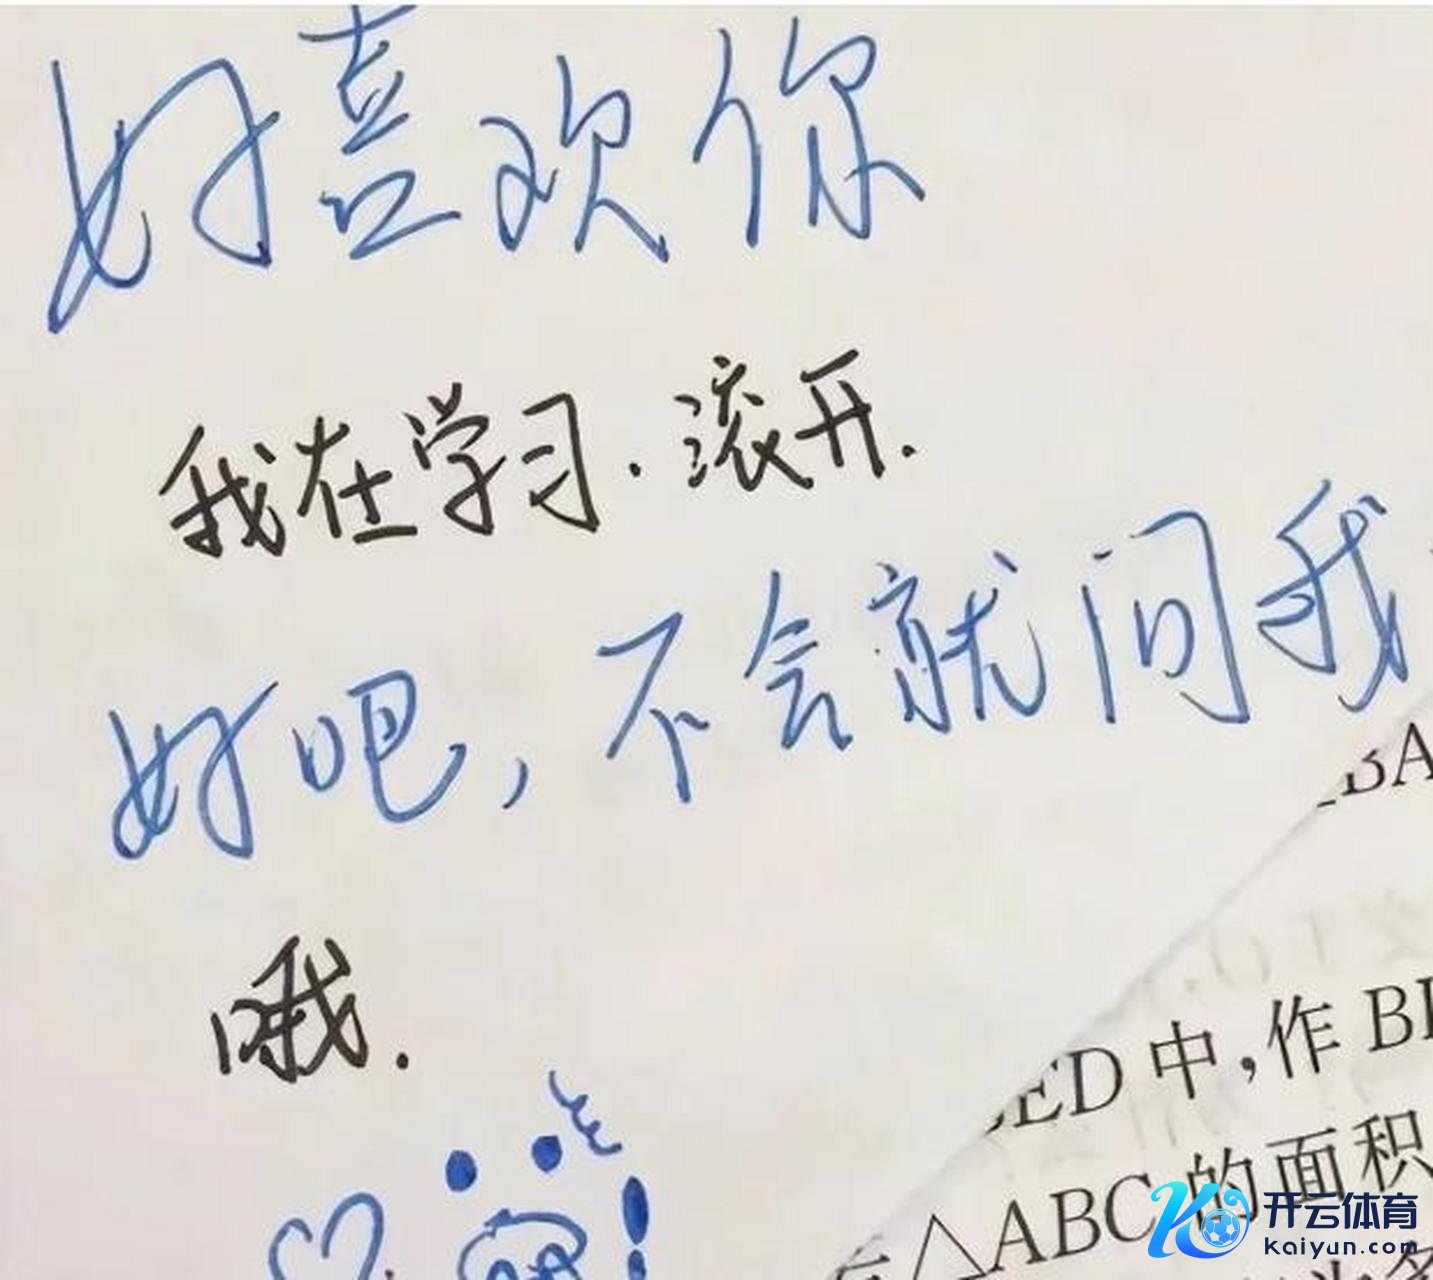 好喜欢你
我在学习.滚开.
好吧，不会就问我
哦.
BA
ED中,作B
△ABC的面积
开云体育
Kaiyun.com